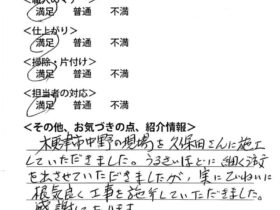 満足 普通 不満
<仕上がり>
満足 普通 不満
<掃除・片付け>
満足 普通 不満
<担当者の対応>
満足 普通 不満
<その他、お気づきの点、紹介情報>
木更津市中野の現場を久保田さんに施工
していただきました。うるさいほどに細く注文
を出させていただきましたが、実にていねいに
根気良く工事を施工していただきました。
感謝しております